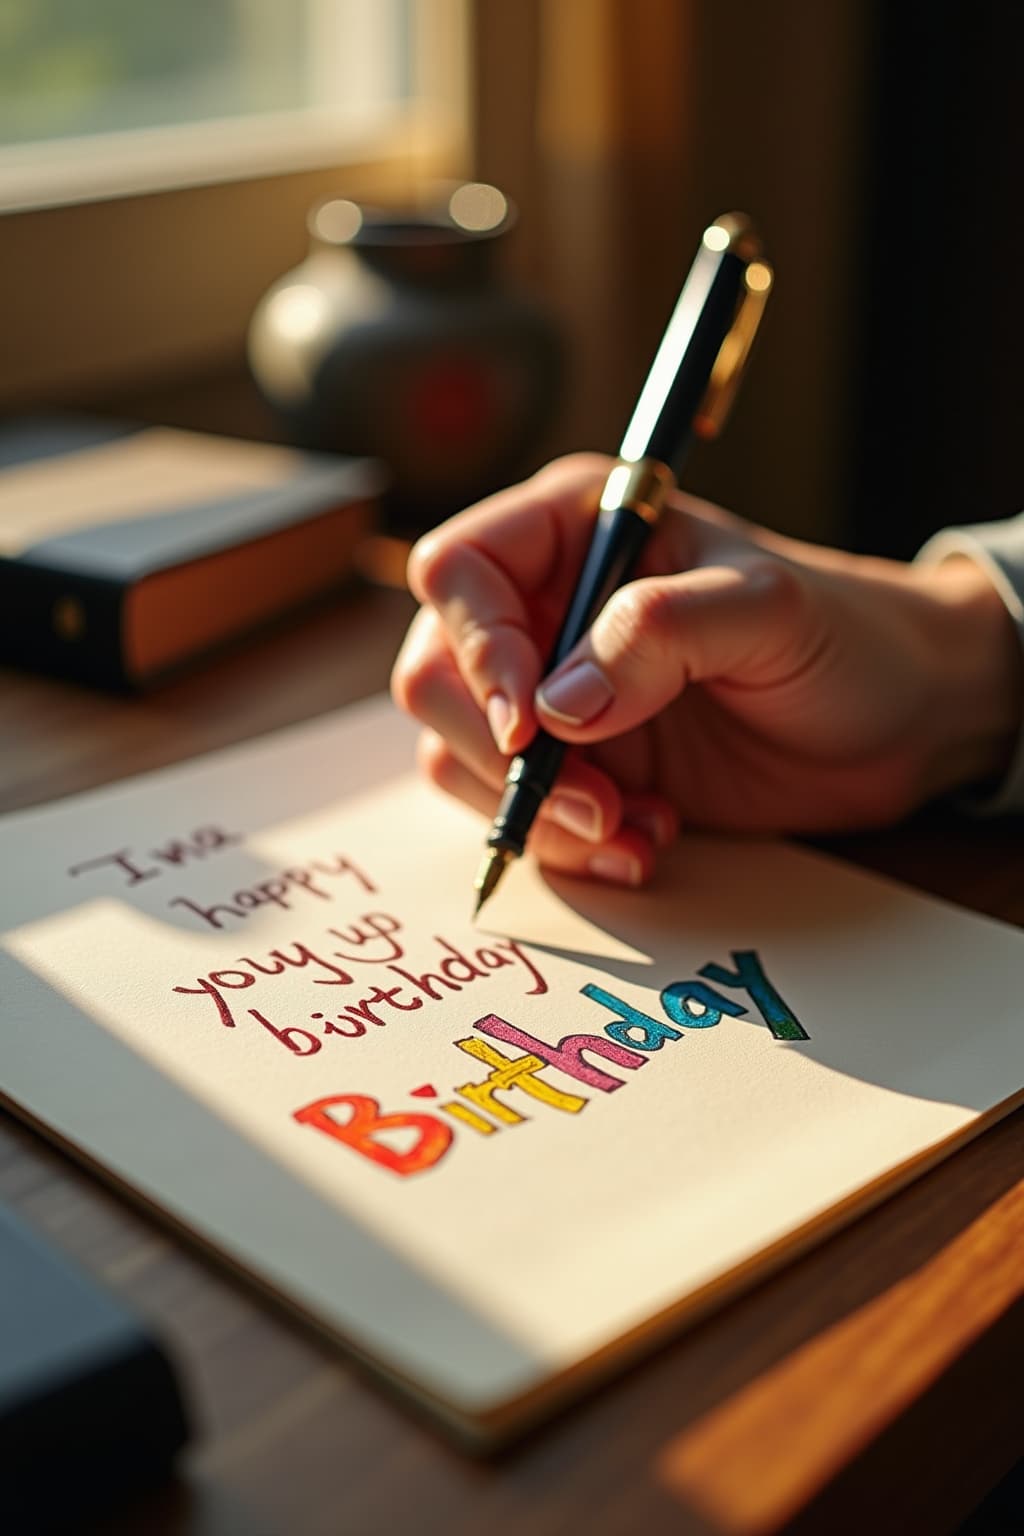 Ina
happy
youy up
birthday
Birthday